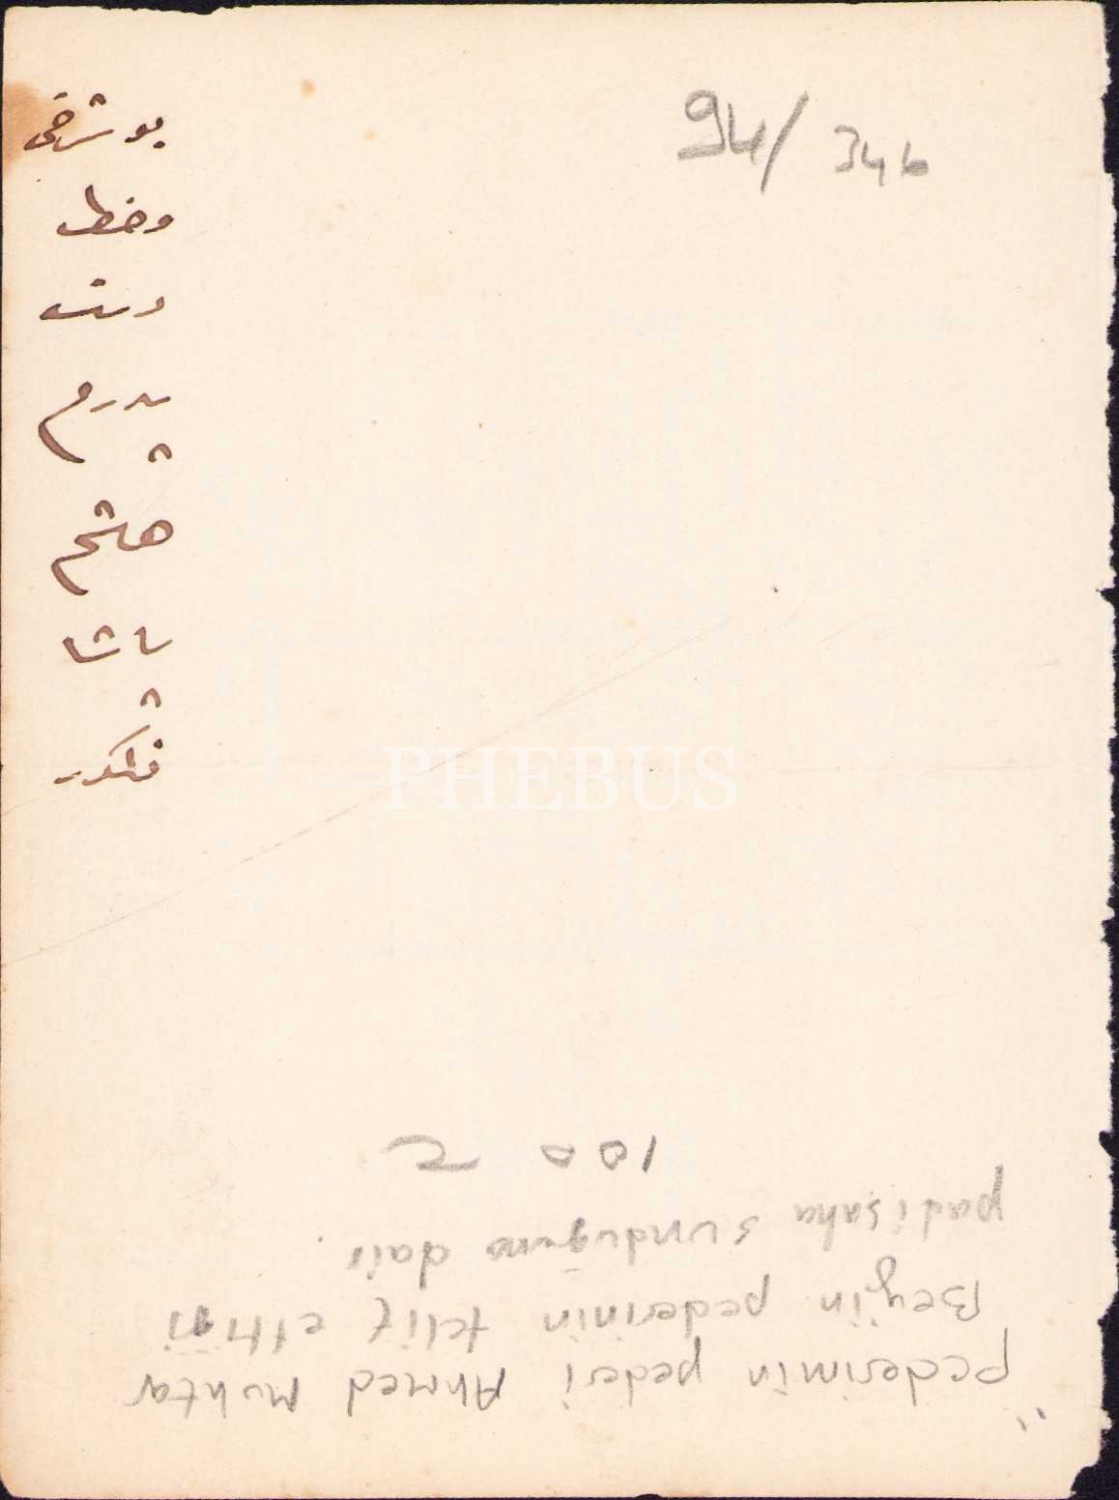 94/ 346
بو شرقی
و خط
و بسته
پدرم
هاشم
پاشا
نكدر
PHEBUS
"Pederimin pederi Ahmed Muhtar
Beyin pederinin telif ettiği
padişaha sunduğuna dair.
100